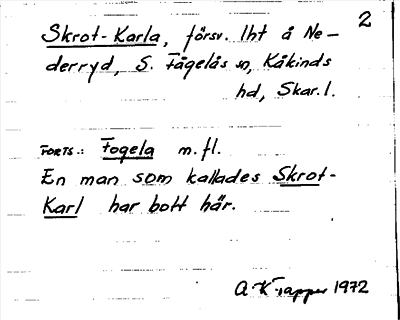 2
Skrot-Karla, försv. lht å Ne-
derryd, S. Fågelås sn, Kåkinds
hd, Skar.l.
FORTS.: Fogela m.fl.
En man som kallades Skrot-
Karl har bott här.
A K 1972